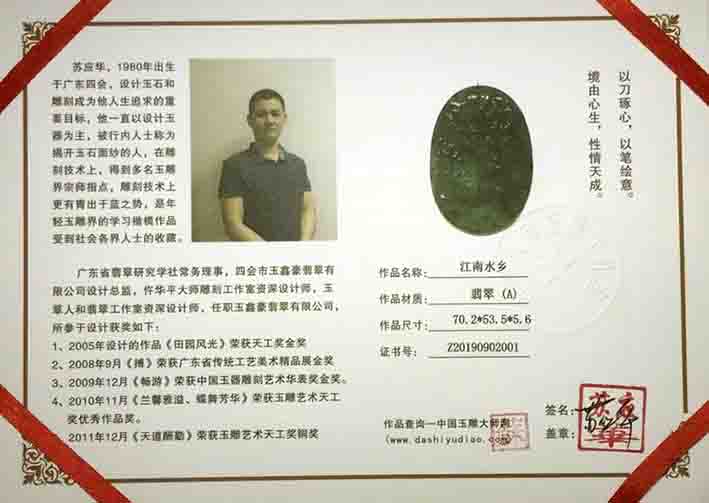 苏应华，1980年出生
于广东四会，设计玉石和
雕刻成为他人生追求的重
要目标，他一直以设计玉
器为主，被行内人士称为
揭开玉石面纱的人，在雕
刻技术上，得到多名玉雕
界宗师指点，雕刻技术上
更有青出于蓝之势，是年
轻玉雕界的学习楷模作品
受到社会各界人士的收藏。
广东省翡翠研究学社常务理事，四会市玉鑫豪翡翠有
限公司设计总监，忤华平大师雕刻工作室资深设计师，玉
翠人和翡翠工作室资深设计师，任职玉鑫豪翡翠有限公司，
所参于设计获奖如下：
1、2005年设计的作品《田园风光》荣获天工奖金奖
2、2008年9月《搏》荣获广东省传统工艺美术精品展金奖
3、2009年12月《畅游》荣获中国玉器雕刻艺术华表奖金奖。
4、2010年11月《兰馨雅溢、蝶舞芳华》荣获玉雕艺术天工
奖优秀作品奖。
2011年12月《天道酬勤》荣获玉雕艺术天工奖铜奖
以刀琢心，以笔绘意。
境由心生，性情天成。
作品名称：江南水乡
作品材质：翡翠 (A)
作品尺寸：70.2*53.5*5.6
证书号：Z20190902001
作品查询—中国玉雕大师网
(www.dashiyudiao.com)
签名：
盖章：
苏应华